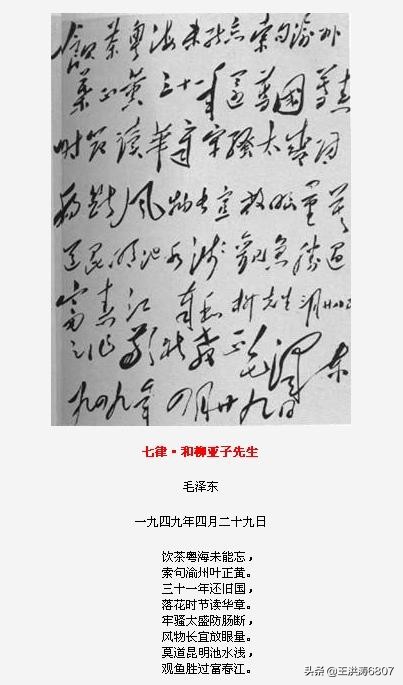 飲茶粤海未能忘索句渝州
葉正黄三十一年還舊國落花
時節讀華章牢騷太盛防
腸斷風物长宜放眼量莫
道昆明池水淺觀魚勝過
富春江 奉和柳先生三月廿八日
之作 敬祈教正 毛澤东
一九四九年四月廿九日
七律·和柳亚子先生
毛泽东
一九四九年四月二十九日
饮茶粤海未能忘，
索句渝州叶正黄。
三十一年还旧国，
落花时节读华章。
牢骚太盛防肠断，
风物长宜放眼量。
莫道昆明池水浅，
观鱼胜过富春江。
头条 @王洪涛6807